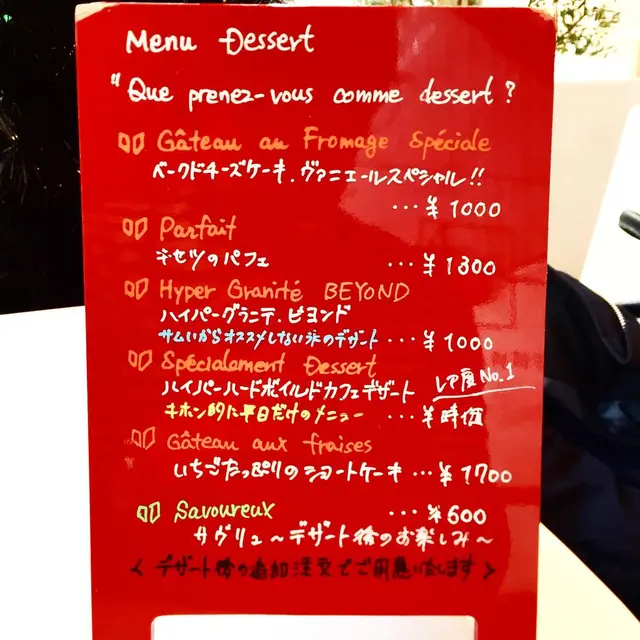 Menu Dessert
"Que prenez-vous comme dessert ?
Gâteau au Fromage Spéciale
ベークドチーズケーキ.ヴァニエールスペシャル!!
...¥1000
Parfait
キセツのパフェ ...¥1300
Hyper Granité BEYOND
ハイパーグラニテ.ビヨンド
サムいからオススメしない氷のデザート ...¥1000
Spécialement Dessert
ハイパーハードボイルドカフェデザート レア度No.1
キホン的に平日だけのメニュー ...¥時価
Gâteau aux fraises
いちごたっぷりのショートケーキ ...¥1700
Savoureux ...¥600
サヴリュ〜デザート後のお楽しみ〜
<デザート後の追加注文でご用意いたします>